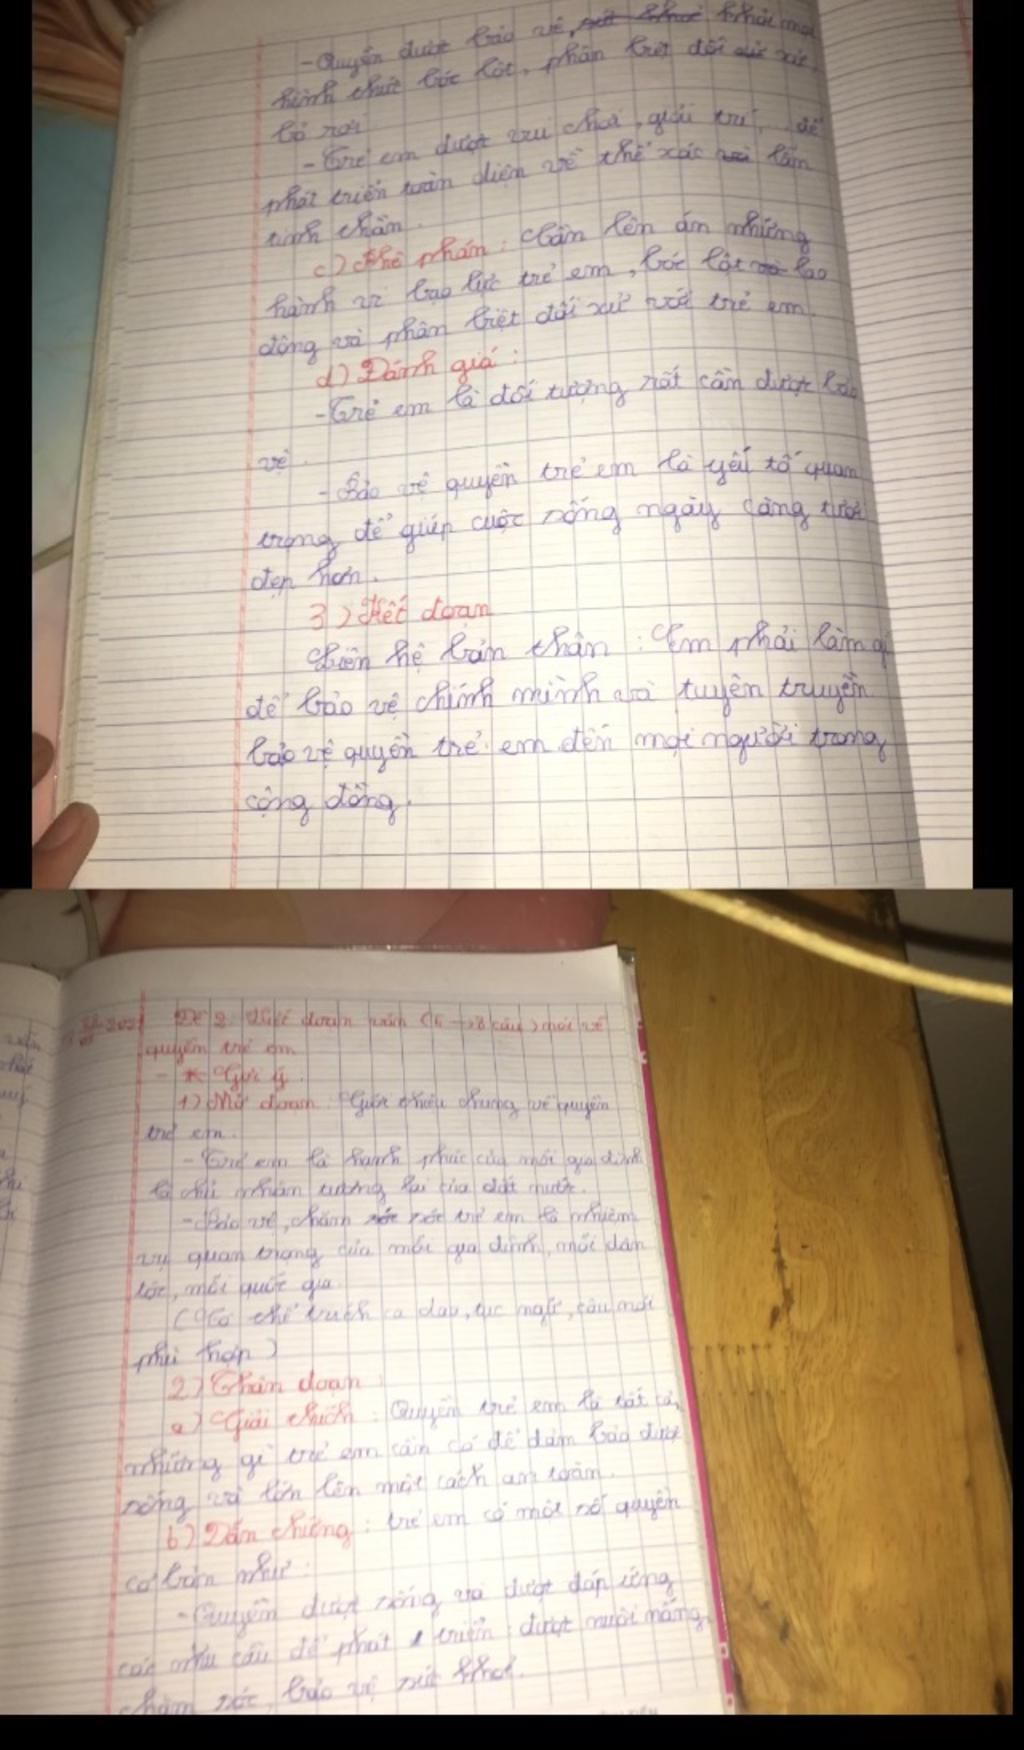 - Quyền được bảo vệ, khỏi mọi
hình thức bóc lột, phân biệt đối xử
bỏ rơi
- Trẻ em được vui chơi, giải trí, để
phát triển toàn diện về thể xác lẫn
tinh thần.
c) Phê phán: Cần lên án những
hành vi bạo lực trẻ em, bóc lột lao
động và phân biệt đối xử với trẻ em.
d) Đánh giá:
- Trẻ em là đối tượng rất cần được bảo
vệ.
- Bảo vệ quyền trẻ em là yếu tố quan
trọng để giúp cuộc sống ngày càng tươi
đẹp hơn.
3) Kết đoạn
Liên hệ bản thân: Em phải làm gì
để bảo vệ chính mình và tuyên truyền
bảo vệ quyền trẻ em đến mọi người trong
cộng đồng.
Đề 2: Viết đoạn văn (6 → 8 câu) nói về
quyền trẻ em
- * Gợi ý.
1) Mở đoạn: Giới thiệu chung về quyền
trẻ em.
- Trẻ em là hạnh phúc của mỗi gia đình
là chủ nhân tương lai của đất nước.
- Bảo vệ, chăm sóc trẻ em là nhiệm
vụ quan trọng của mỗi gia đình, mỗi dân
tộc, mỗi quốc gia.
(Có thể trích ca dao, tục ngữ, câu nói
phù hợp)
2) Thân đoạn:
a) Giải thích: Quyền trẻ em là tất cả
những gì trẻ em cần có để đảm bảo được
sống và lớn lên một cách an toàn.
b) Dẫn chứng: trẻ em có một số quyền
cơ bản như:
- Quyền được sống và được đáp ứng
các nhu cầu để phát triển: được nuôi nấng
chăm sóc, bảo vệ sức khoẻ.